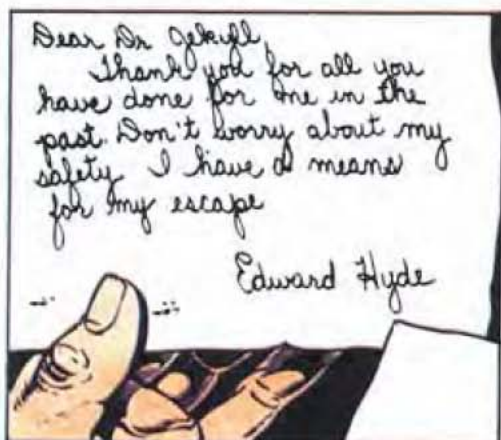 Dear Dr Jekyll,
Thank you for all you
have done for me in the
past. Don't worry about my
safety I have a means
for my escape
Edward Hyde